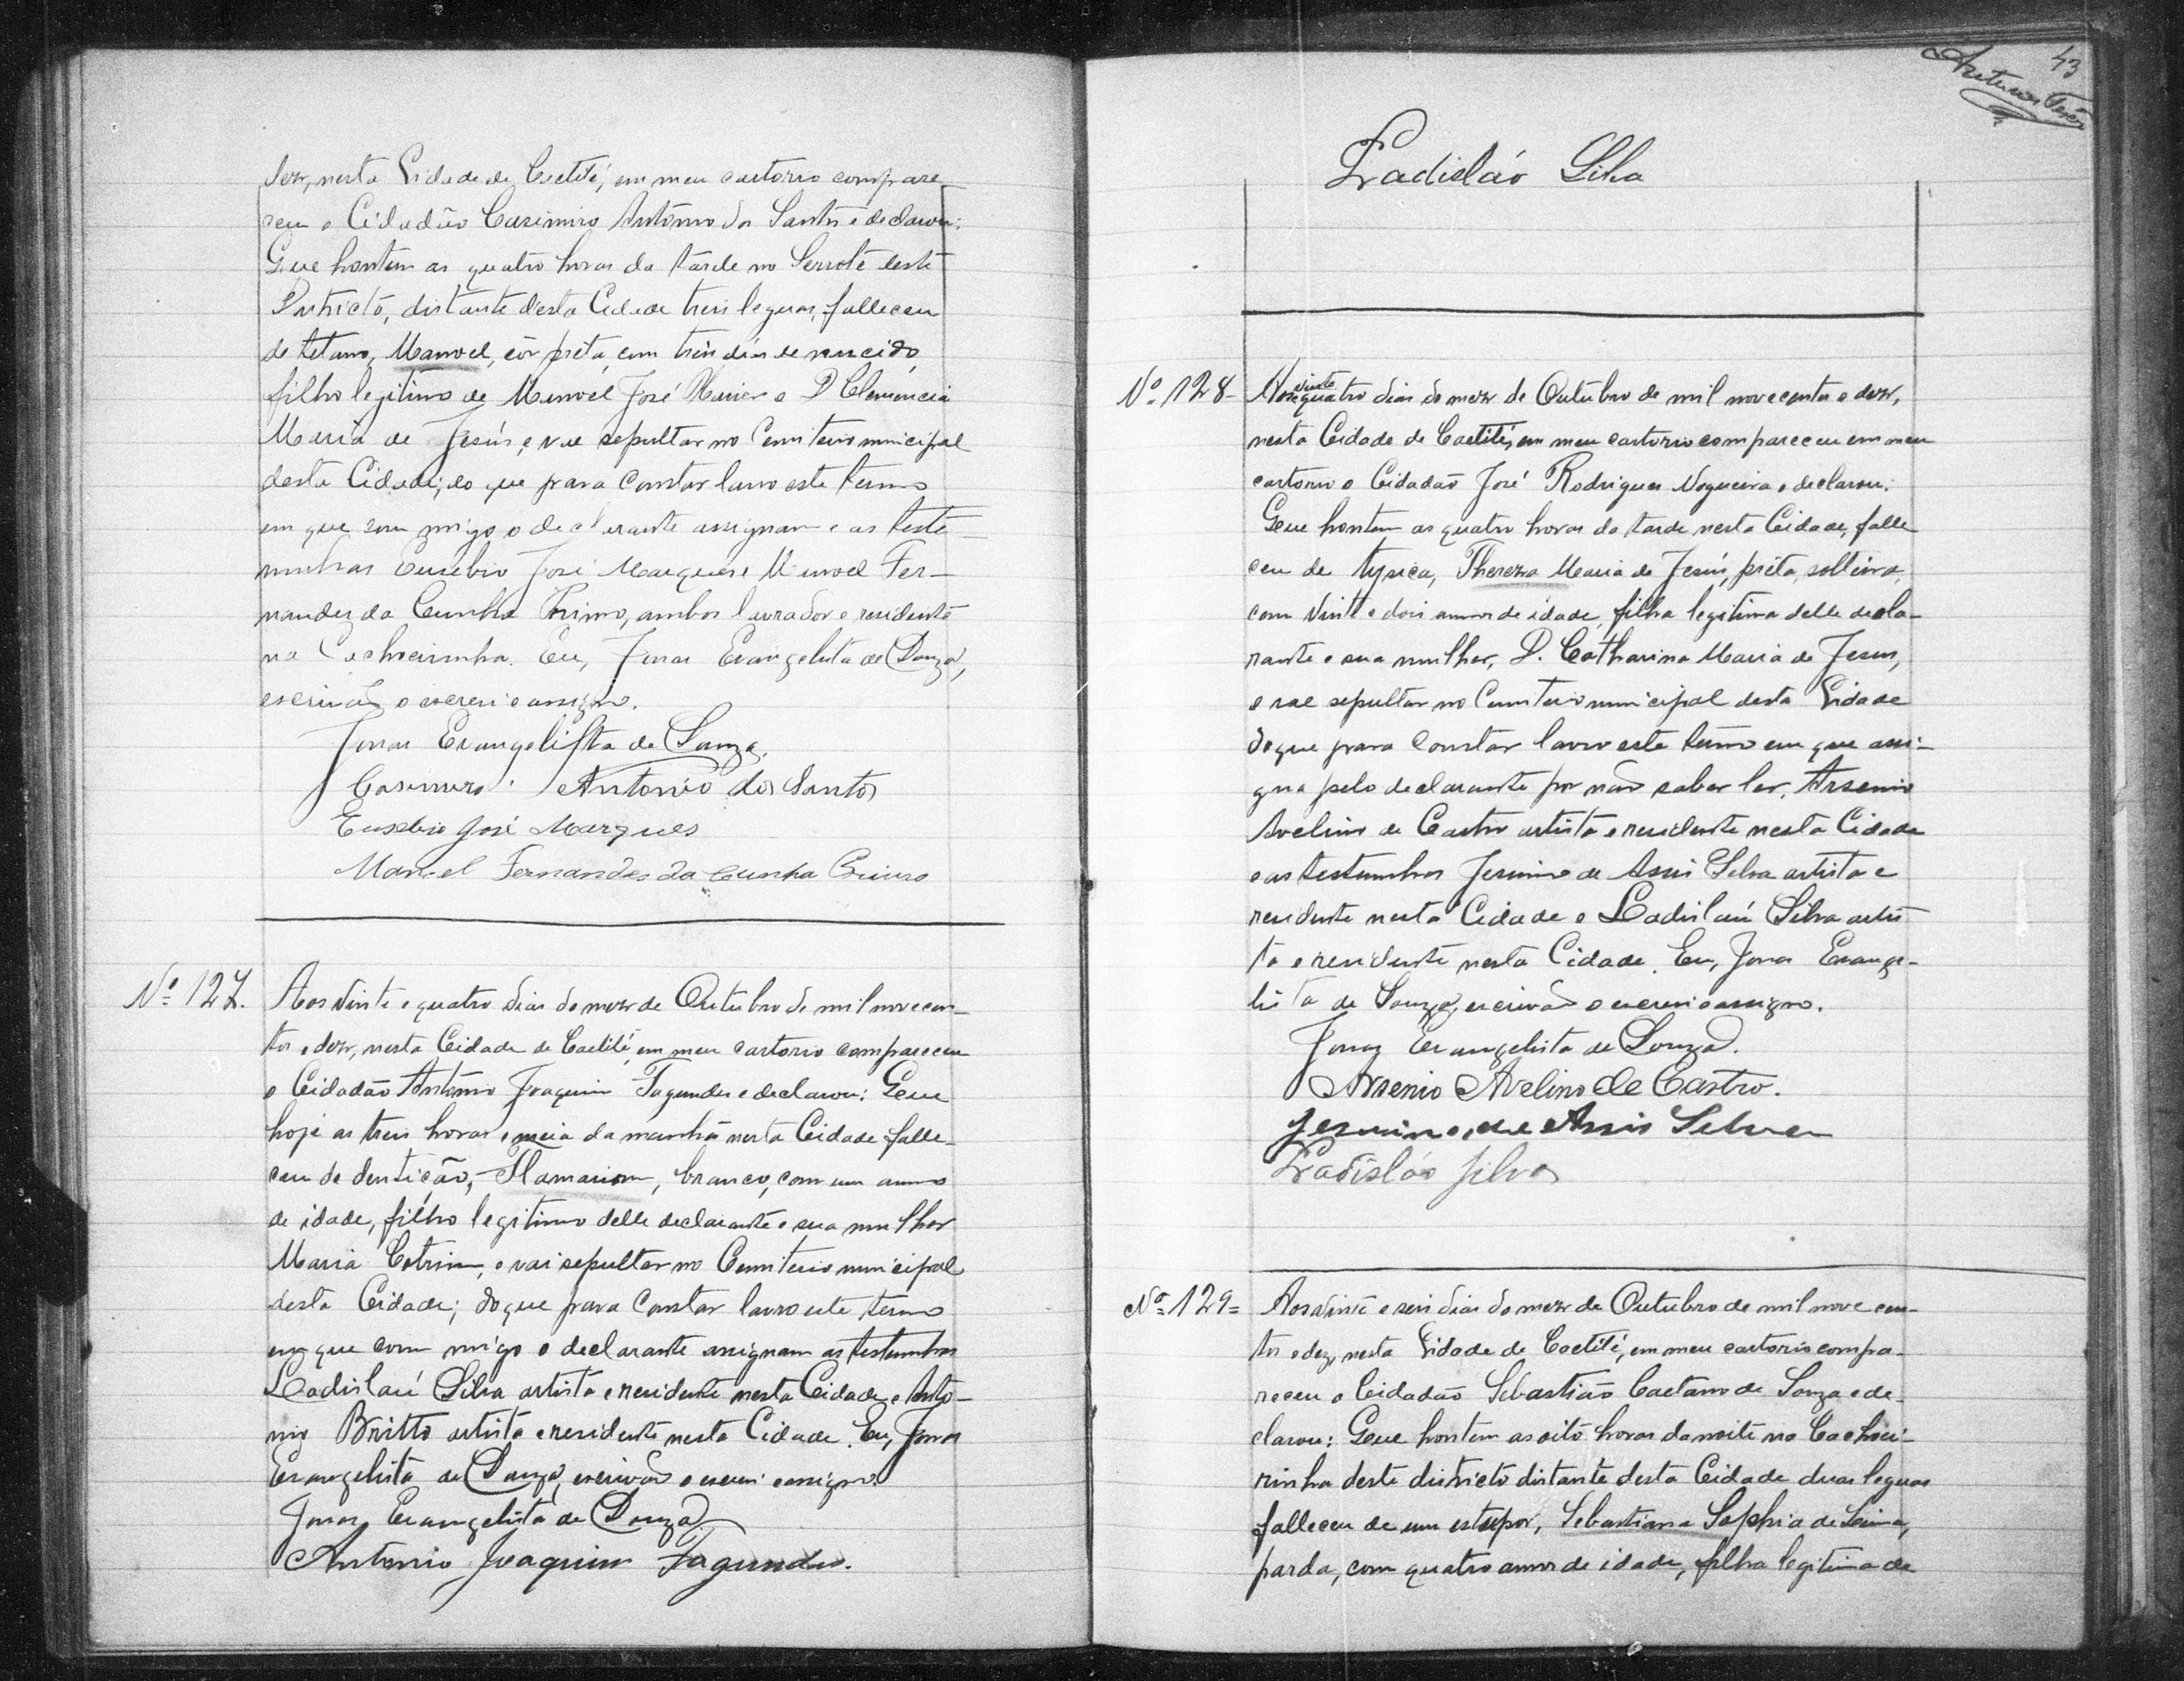 dezr, nesta Cidade de Caetité, em meu cartorio compare
ceu o Cidadão Casimiro Antônio dos Santos e declarou:
Que hontem as quatro horas da tarde no Serrote deste
Districto, distante desta Cidade treis leguas, falleceu
de tetano, Manoel, côr preta, com treis dias de nascido,
filho legitimo de Manoel José Xavier e D. Clemencia
Maria de Jesús, e vae sepultar no Cemiterio municipal
desta Cidade; do que para constar lavro este termo
em que com migo o declarante assignam e as teste
munhas Eusebio José Marques e Manoel Fer-
nandes da Cunha Primo, ambos lavrador e residente
na Cachoeirinha. Eu, Jonas Evangelista de Souza,
escrivão o escrevi e assigno.
Jonas Evangelista de Souza.
Casimiro Antonio dos Santos
Eusebio José Marques
Manoel Fernandes da Cunha Primo
Nº 127. Aos vinte e quatro dias do mezr de Outubro de mil novecen-
tos e dezr, nesta Cidade de Caetité, em meu cartorio compareceu
o Cidadão Antônio Joaquim Fagundes e declarou: Que
hoje as treis horas e meia da manhã nesta Cidade falle-
ceu de dentição, Flamarion, branco, com um anno
de idade, filho legitimo delle declarante e sua mulher
Maria Cotrim, e vai sepultar no Cemiterio municipal
desta Cidade; do que para constar lavro este termo
em que com migo o declarante assignam as testemunhas
Ladislaú Silva artista e residente nesta Cidade e Anto-
nio Britto artista e residente nesta Cidade. Eu, Jonas
Evangelista de Souza, escrivão o escrevi e assigno.
Jonas Evangelista de Souza
Antonio Joaquim Fagundes.
43
Ladisláo Silva
Nº 128- Aos vinte quatro dias do mezr de Outubro de mil novecentos e dezr,
nesta Cidade de Caetité, em meu cartorio compareceu em meu
cartorio o Cidadão José Rodrigues Nogueira e declarou:
Que hontem as quatro horas da tarde nesta Cidade, falle
ceu de tysica, Thereza Maria de Jesús, preta, solteira,
com vinte e dois annos de idade, filha legitima delle decla-
rante e sua mulher, D. Catharina Maria de Jesus,
e vae sepultar no Cemiterio municipal desta Cidade
do que para constar lavro este termo em que assi-
gna pelo declarante por não saber ler, Arsenio
Avelino de Castro artista e residente nesta Cidade
e as testemunhas Jesuino de Assis Silva artista e
residente nesta Cidade e Ladislaú Silva artis
ta e residente nesta Cidade. Eu, Jonas Evange-
lista de Souza, escrivão o escrevi e assigno.
Jonas Evangelista de Souza.
Arsenio Avelino de Castro.
Jesuino de Assis Silva
Ladisláo Silva
Nº 129= Aos vinte e seis dias do mezr de Outubro de mil nove cen-
tos e dez, nesta Cidade de Caetité, em meu cartorio compa-
receu o Cidadão Sebastião Caetano de Souza e de-
clarou: Que hontem as oito horas da noite na Cachoei-
rinha deste districto distante desta Cidade duas leguas
falleceu de um estupor, Sebastiana Sophia de Lima,
parda, com quatro annos de idade, filha legitima de